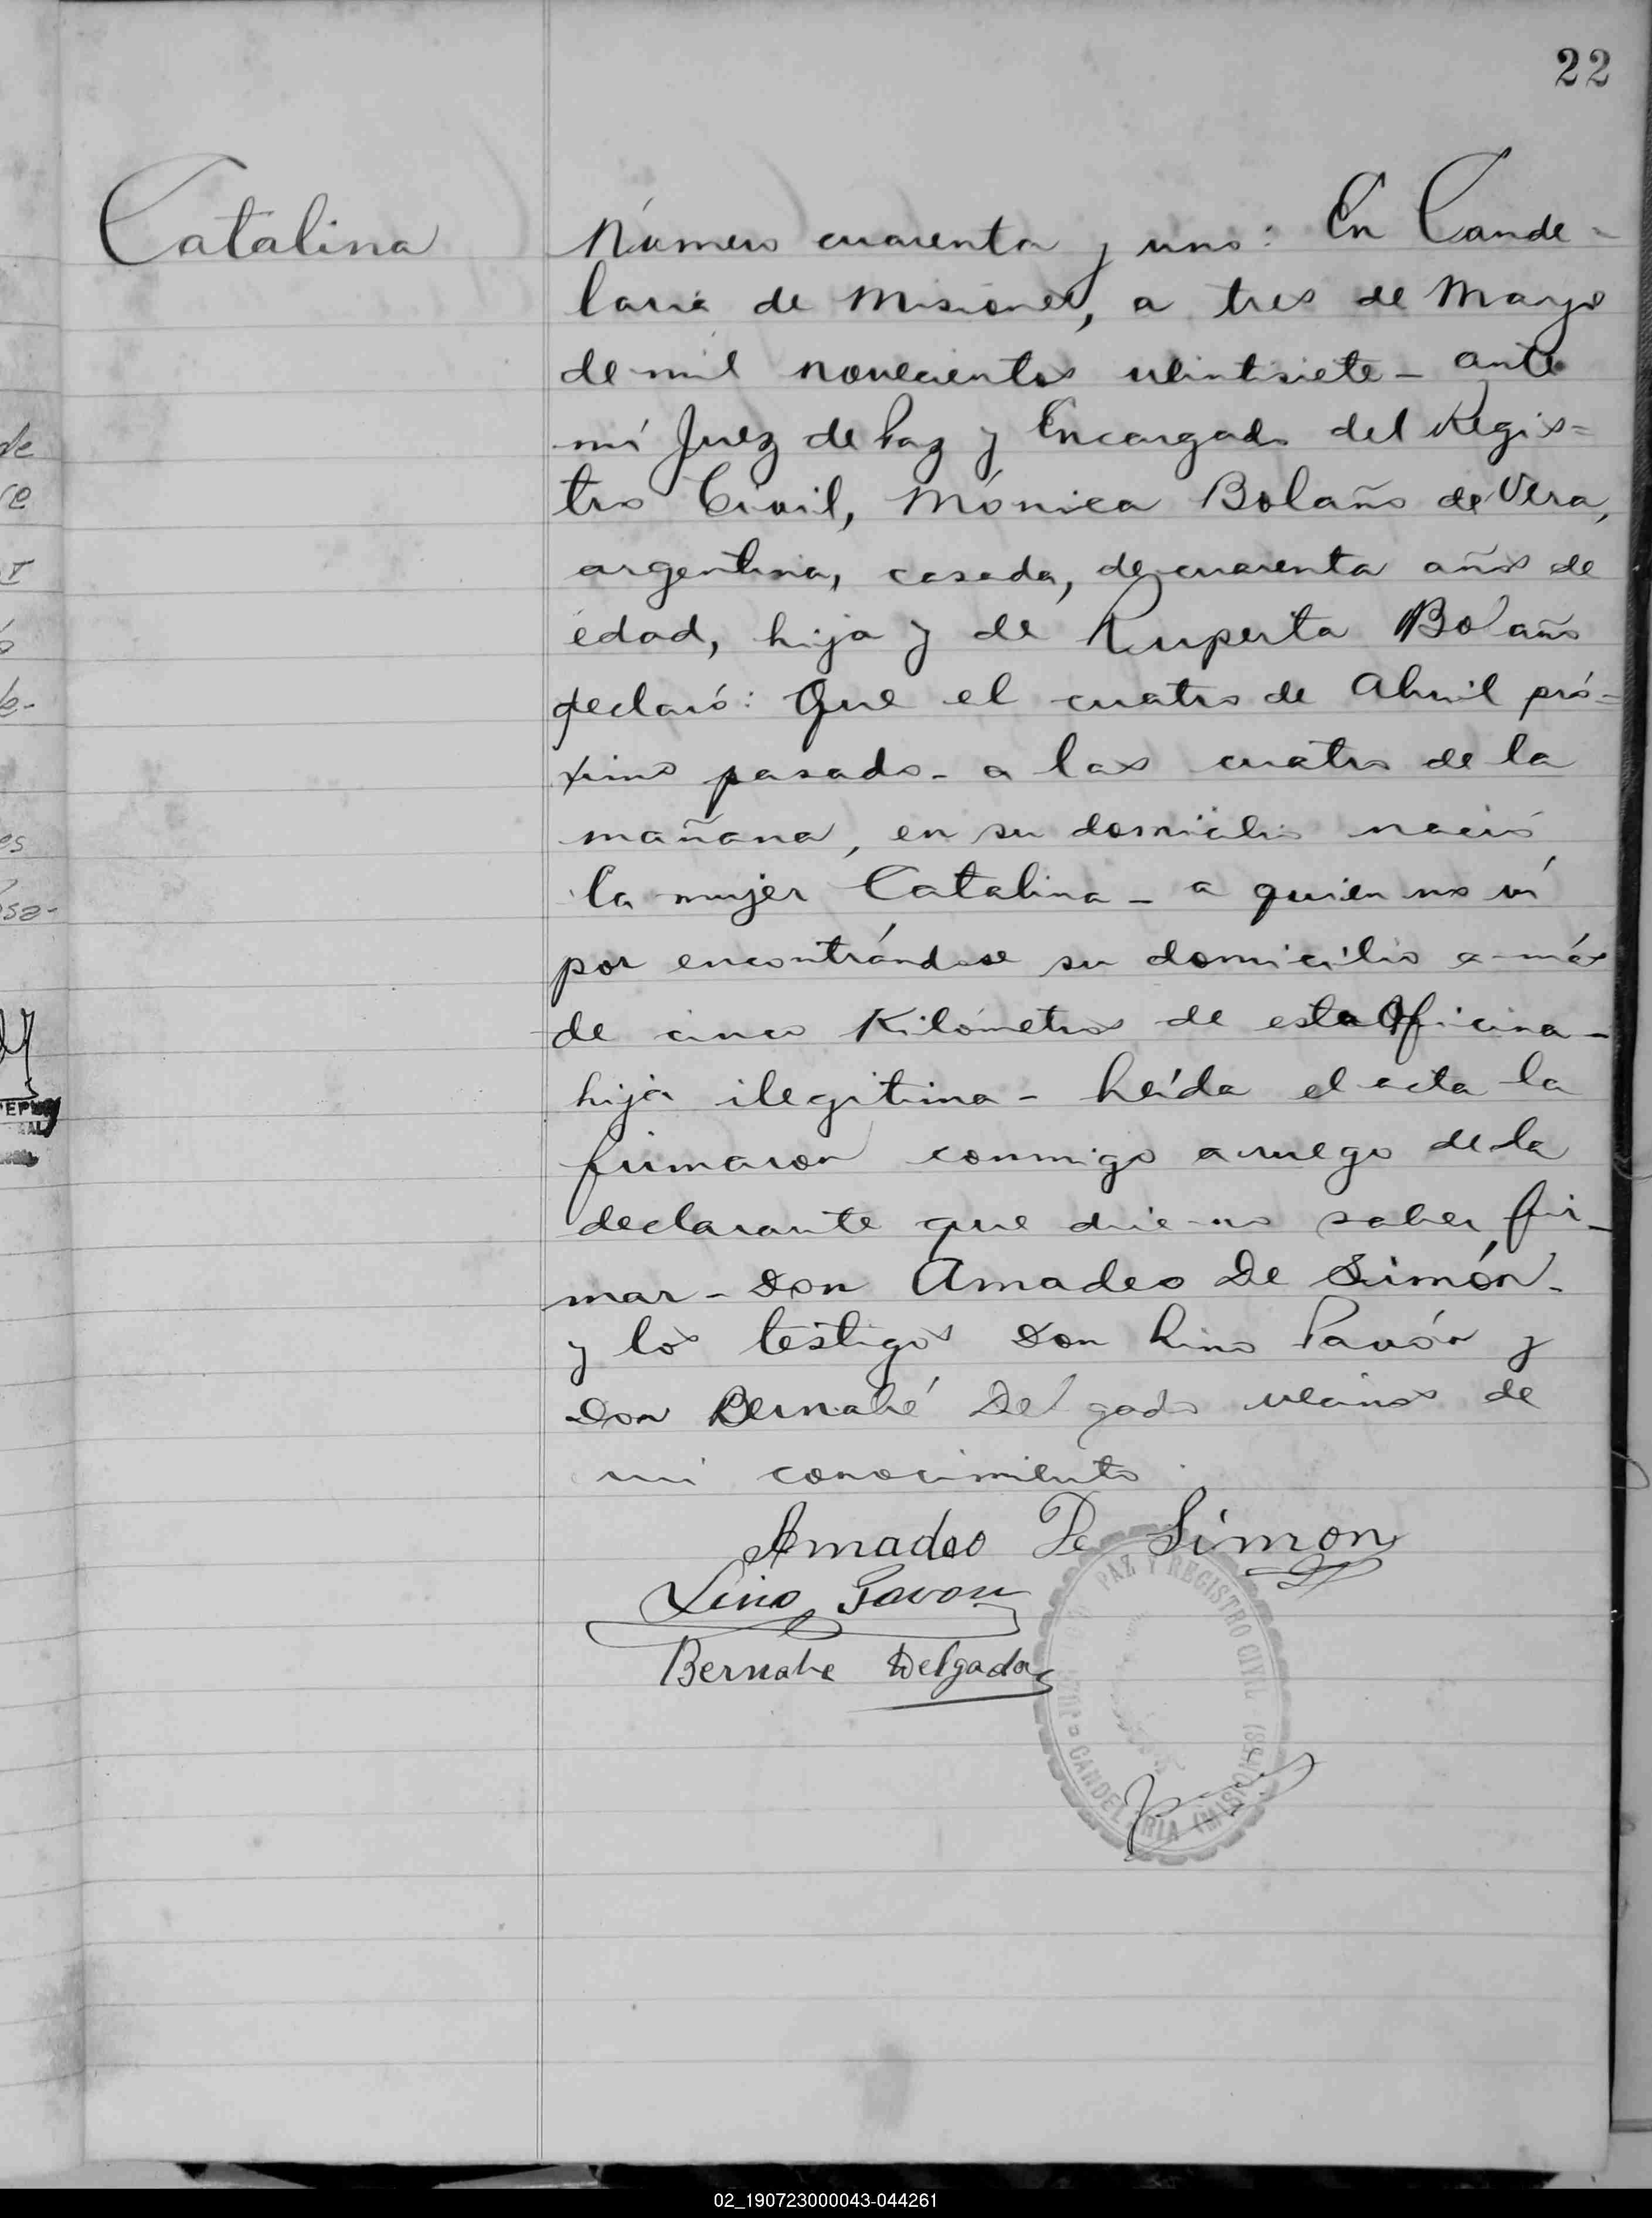 22
Catalina
Número cuarenta y uno: En Cande-
laria de Misiones, a tres de Mayo
de mil novecientos veintisiete - ante
mí Juez de Paz y Encargado del Regis=
tro Civil, Mónica Bolaño de Vera,
argentina, casada, de cuarenta años de
edad, hija y de Ruperta Bolaño
declaró: Que el cuatro de Abril pró=
ximo pasado - a las cuatro de la
mañana, en su domicilio nació
la mujer Catalina - a quien no ví
por encontrándose su domicilio a más
de cinco Kilómetros de esta Oficina -
hija ilegitima - Leída el acta la
firmaron conmigo a ruego de la
declarante que dice no saber fir-
mar - Don Amadeo De Simón -
y los testigos Don Lino Pavón y
Don Bernabé Delgado vecinos de
mi conocimiento.
Amadeo De Simon
Lino Pavon
Bernabe Delgado
JUZ PAZ Y REGISTRO CIVIL
CANDELARIA (MISIONES)
de
re
es
osa-
02_190723000043-044261